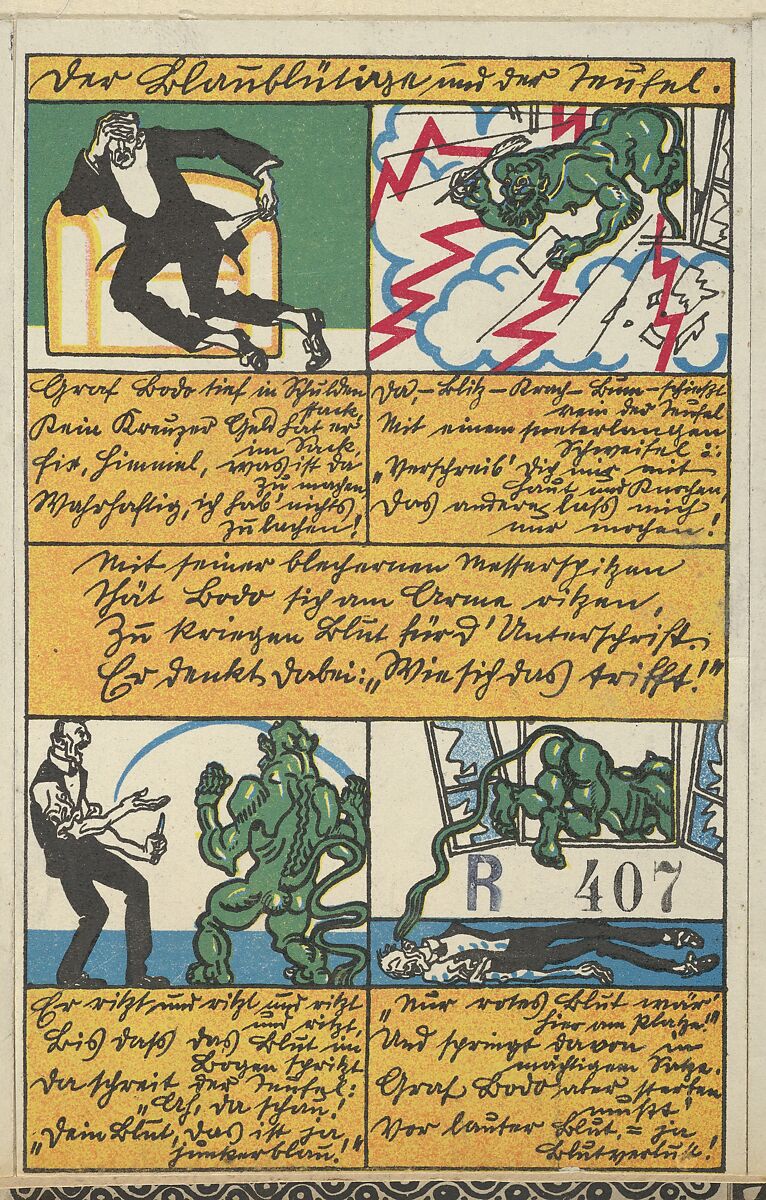 Der Blaublütige und der Teufel.
Graf Bodo tief in Schulden
stack,
Kein Kreuzer Geld hat er
im Sack,
Fix, Himmel, was ist da
zu machen
Wahrhaftig, ich hab' nichts
zu lachen!
Da, – Blitz – Krach – Bum – schiesst
rein der Teufel
Mit einem meterlangen
Schweifel:
„Verschreib' Dich mir mit
Haut und Knochen,
Das andere lass mich
nur mochen!
Mit seiner blechernen Messerspitzen
Thät Bodo sich am Arme ritzen,
Zu kriegen Blut für d' Unterschrift.
Er denkt dabei: „Wie sich das trifft!"
R 407
Er ritzt und ritzt und ritzt
und ritzt,
Bis dass das Blut im
Bogen spritzt
Da schreit der Teufel:
„Ah, da schau!
„Dein Blut, das ist ja,
junkerblau!"
„Nur rotes Blut wär'
hier am Platze!"
Und springt davon in
mächtigem Satze.
Graf Bodo aber sterben
musst'
Vor lauter Blut = ja
Blutverlust!